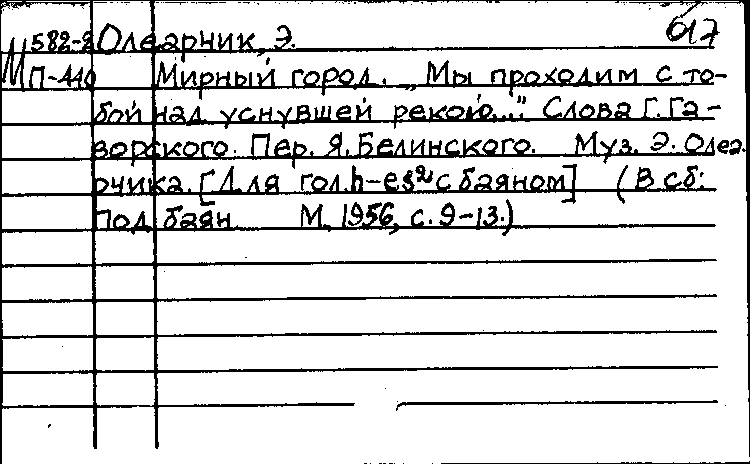 М582-2 Олеарчик, Э. 617
П-440 Мирный город. „Мы проходим с то-
бой над уснувшей рекою..." Слова Г. Га-
ворского. Пер. Я. Белинского. Муз. Э. Олеа-
рчика. [Для гол. h-es² с баяном] (В сб:
Под баян М, 1956, с. 9-13.)